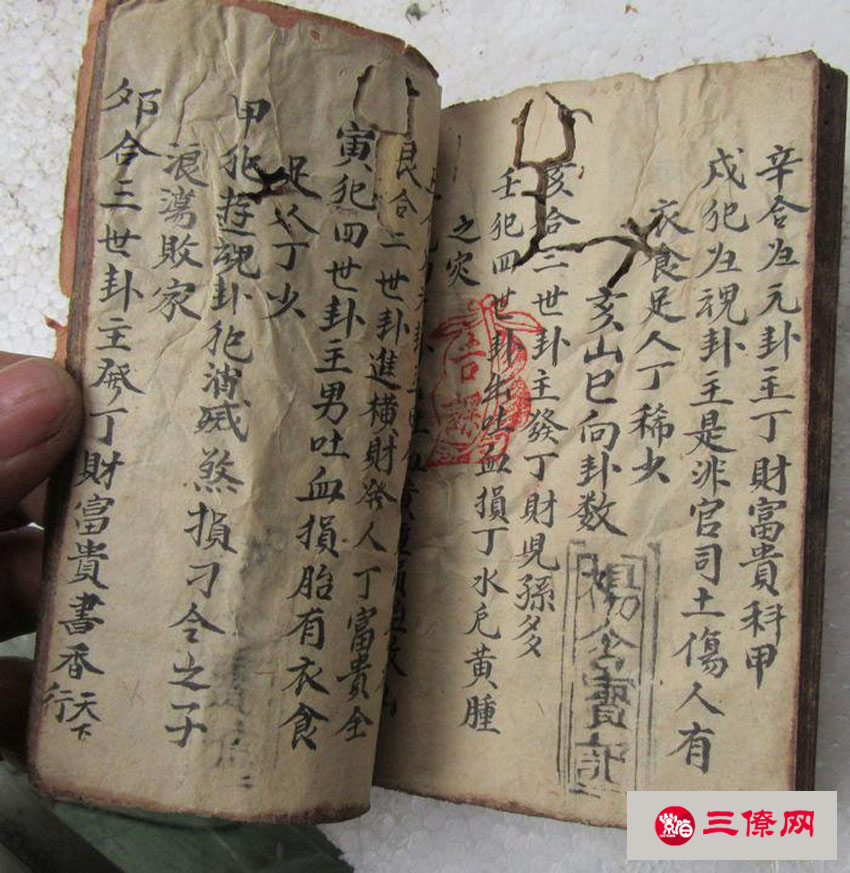 辛合归元卦主丁財富貴科甲
戌犯归魂卦主是非官司土傷人有
衣食足人丁稀少
亥山巳向卦数
楊公寶記
亥合三世卦主發丁財児孫多
壬犯四世卦牛吐血損丁水厄黄腫
之灾
吉課
艮合二世卦進横財發人丁富貴全
寅犯四世卦主男吐血損胎有衣食
足人丁少
甲犯遊魂卦犯消滅煞損刁令之子
浪蕩敗家
夘合三世卦主發丁財富貴書香天下行
三僚网